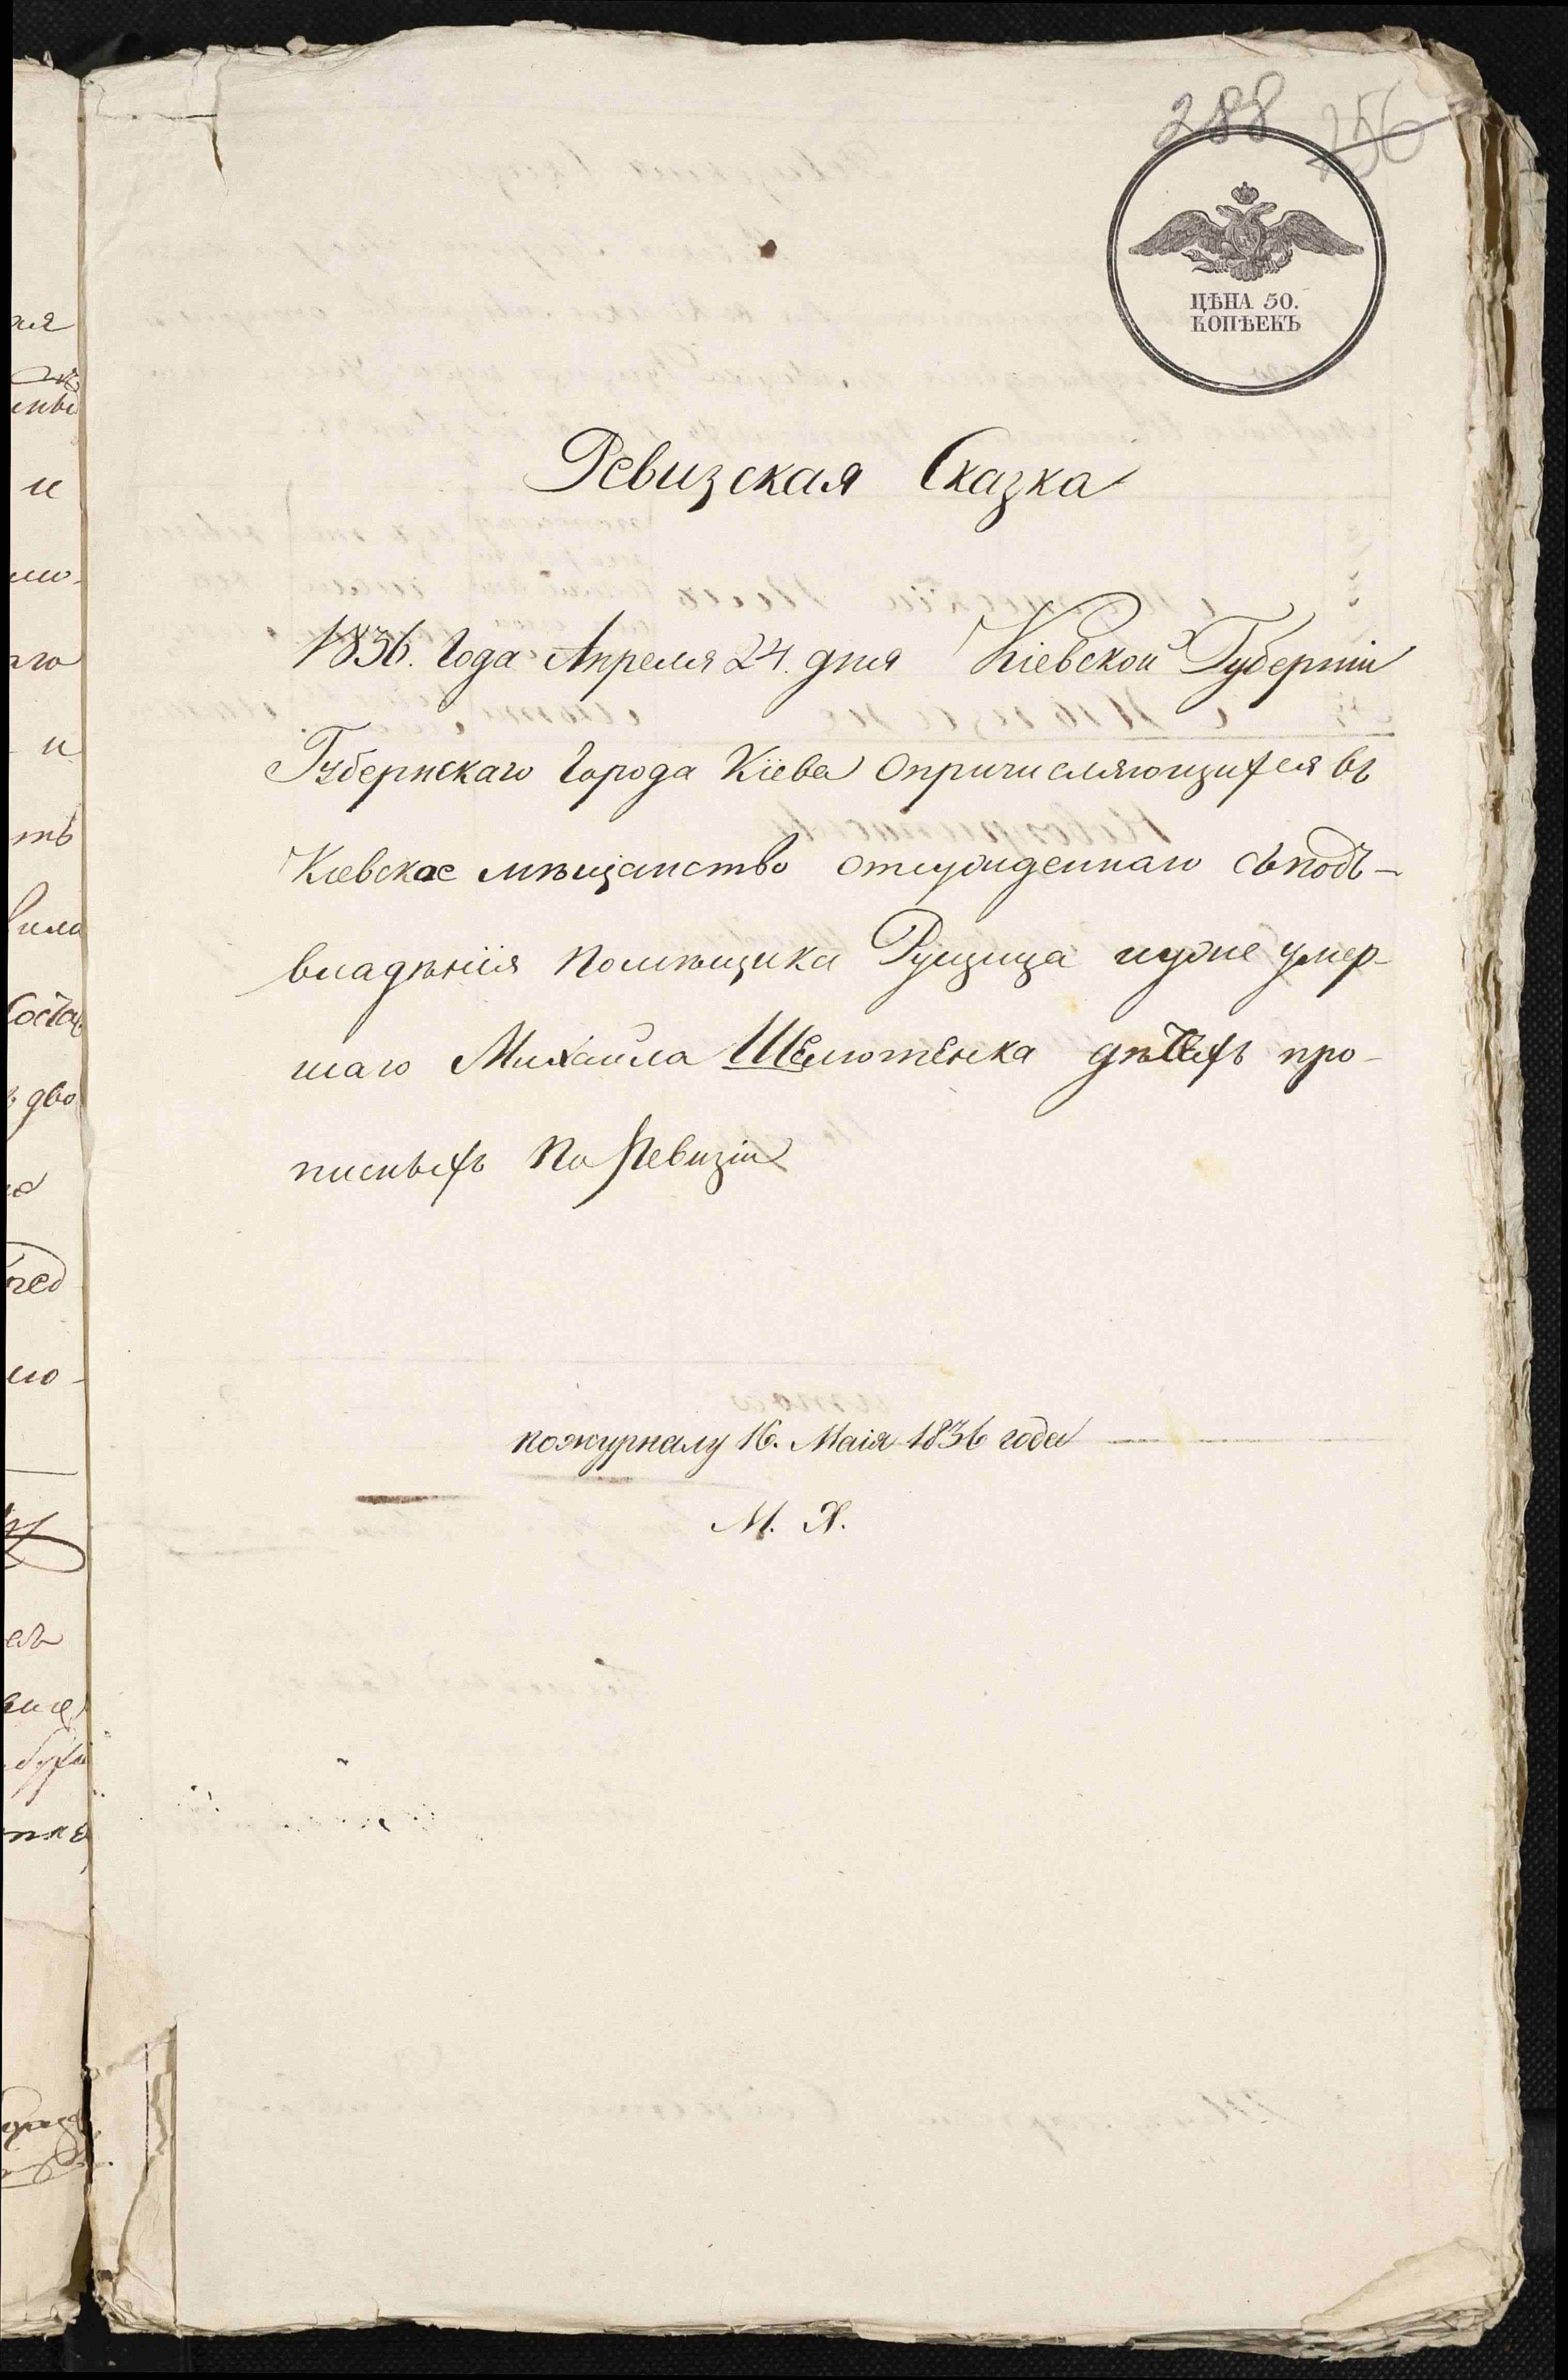 288 256
ЦѢНА 50.
КОПѢЕКЪ
Ревизская Сказка
1836. Года Апреля 24. дня Кіевской Губерніи
Губернскаго Города Кіева опричисляющихся въ
Кіевское мѣщанство отсужденнаго съподъ-
владѣнія помѣщика Рущица иуже умер-
шаго Михаила Шелютенка дѣтехъ про-
писныхъ по Ревизіи
пожурналу 16. Маія 1836 года
М. Х.